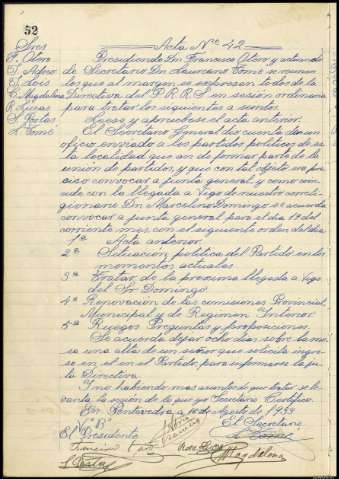 52
Sres
Acta Nº 42
P. Otero
Presidiendo Dn Francisco Otero y actuando
de Secretario Dn Laureano Tomé se reunen
los que al margen se expresan todos de la
C. Magdalena Directiva del P.R.R.S. en sesión ordinaria
R. Lucas para tratar los siguientes asuntos.
S. Poetas Leese y apruebase el acta anterior.
L. Tomé El Secretario General dio cuenta de un
oficio enviado a los partidos politicos de es
ta localidad que han de formar parte de la
unión de partidos, y que con tal objeto era pre
ciso convocar a junta general, y como coin
cide con la llegada a Vigo de nuestro correli
gionario Dn Marcelino Domingo se acuerda
convocar a junta general para el dia 19 del
corriente mes, con el siguiente orden del dia
1ª Acta anterior.
2ª Situación politica del Partido en los
momentos actuales
3ª Tratar de la proxima llegada a Vigo
del Sr Domingo
4ª Renovación de las comisiones Provincial,
Municipal y de Regimen Interior.
5ª Ruegos Preguntas y proposiciones.
Se acuerda dejar ocho dias sobre la me
sa una alta de un señor que solicita ingre
so en el Partido, para informarse la jun
ta Directiva.
Y no habiendo mas asuntos de que tratar se le
vanta la sesión de lo que yo Secretario Certifico.
En Pontevedra a de Agosto de 1933
Vº Bº
El Presidente
El Secretario
L. Tomé
Francisco
Magdalena